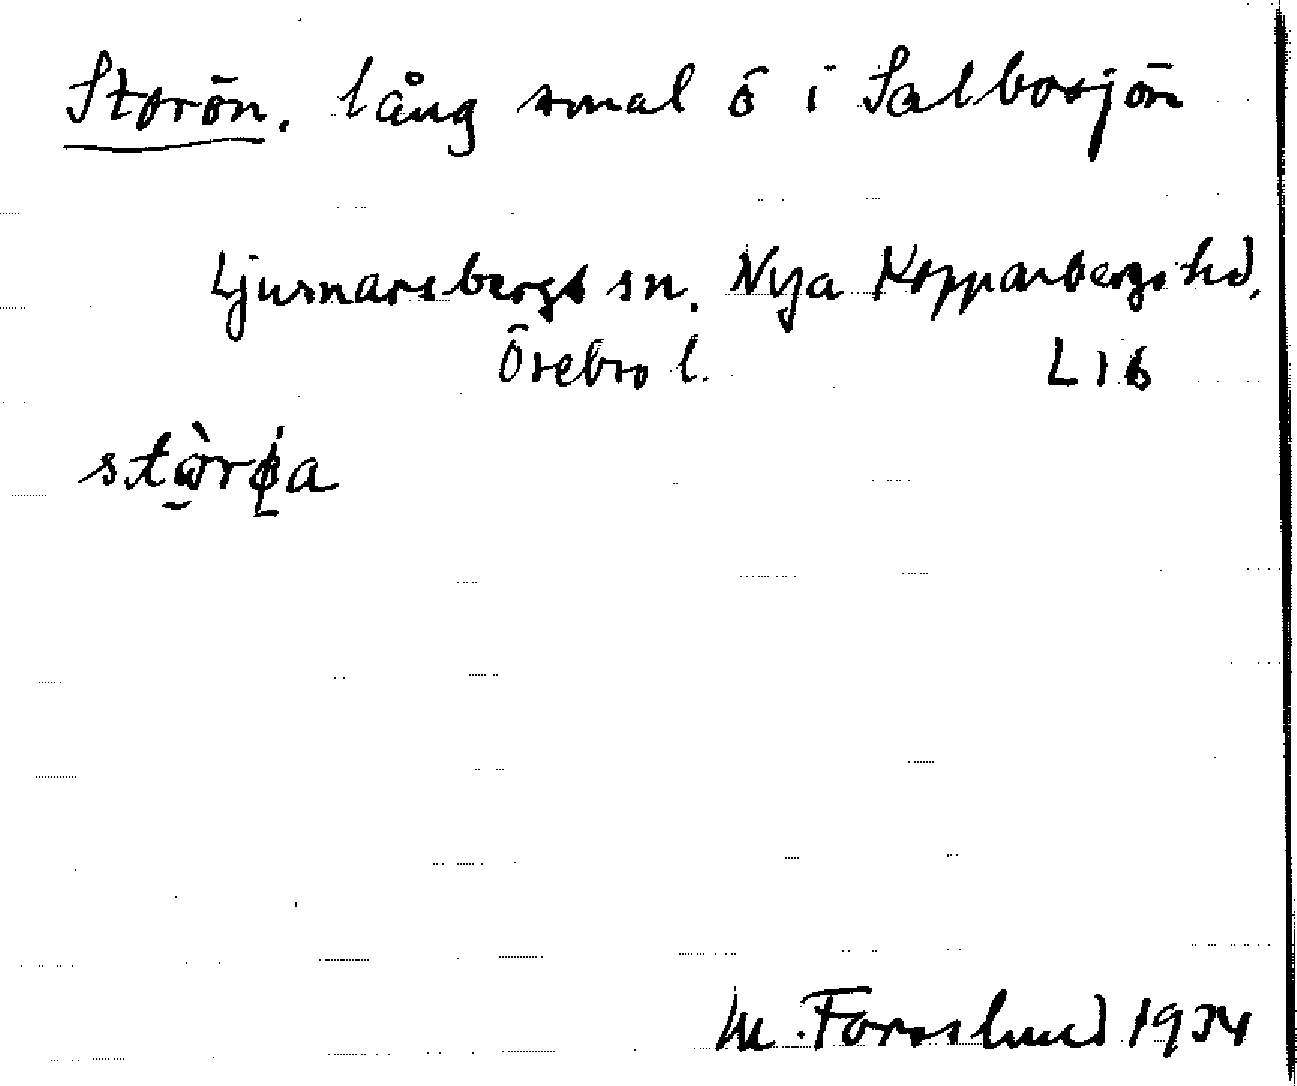 Storön. lång smal ö i Salbosjön
Ljusnarsbergs sn. Nya Kopparbergs hd.
Örebro l. L16
M. Forsslund 1934